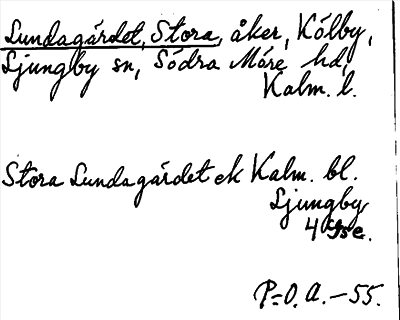 Lundagärdet, Stora, åker, Kölby,
Ljungby sn, Södra Möre hd,
Kalm. l.
Stora Lundagärdet ek Kalm. bl.
Ljungby
4 Gse.
P=O. A. -55.